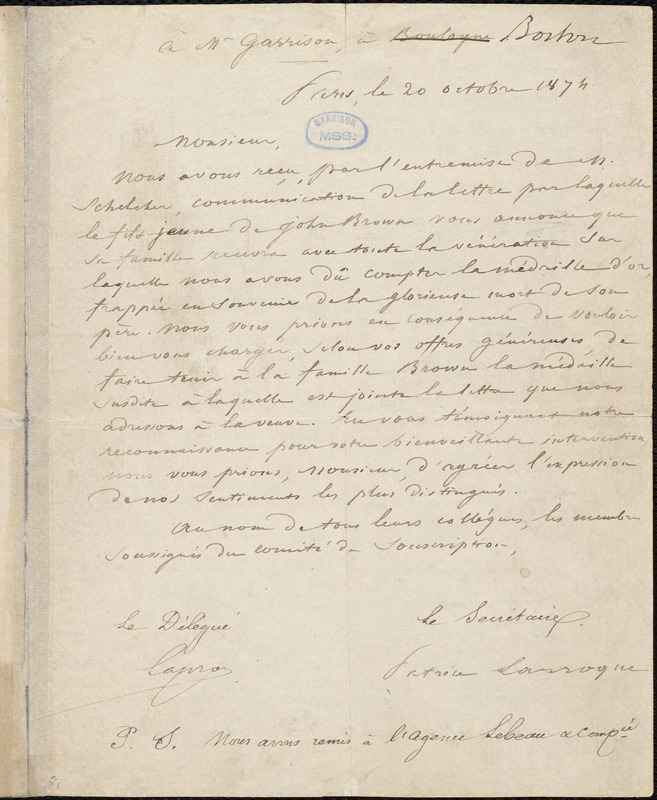 à Mr Garrison, à Boulogne Boston
Paris, le 20 octobre 1874
GARRISON
MSS.
Monsieur,
Nous avons reçu, par l'entremise de M.
Schelcher, communication de la lettre par laquelle
le fils jeune de John Brown vous annonce que
sa famille recevra avec toute la vénération sur
laquelle nous avons dû compter la médaille d'or,
frappée en souvenir de la glorieuse mort de son
père. Nous vous prions en conséquence de vouloir
bien vous charger, selon vos offres généreuses de
faire tenir à la famille Brown la médaille
susdite à laquelle est jointe la lettre que nous
adressons à la veuve. En vous témoignant notre
reconnaissance pour votre bienveillante intervention,
nous vous prions, Monsieur, d'agréer l'expression
de nos sentiments les plus distingués.
Au nom de tous leurs collégues, les membres
soussignés du comité de souscription,
Le Délégué
Le Secrétaire,
Patrice Larroque
P. S. Nous avons remis à l'agence Lebeau & Compie